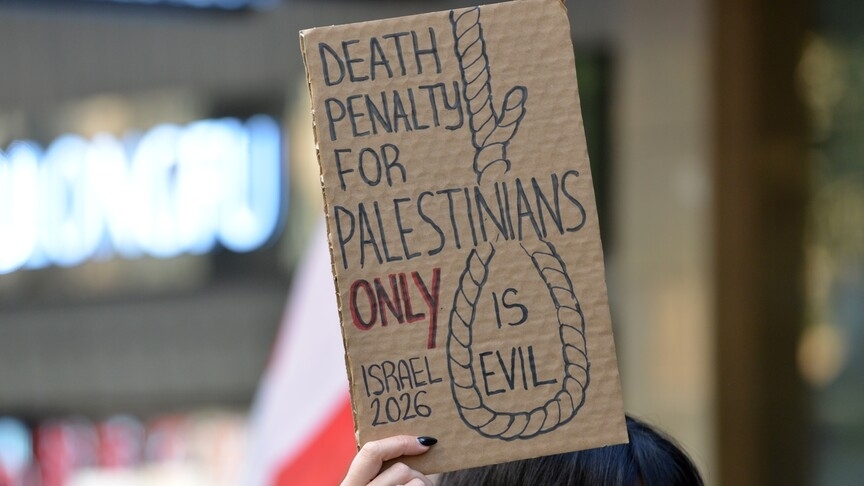 DEATH
PENALTY
FOR
PALESTINIANS
ONLY
IS
EVIL
ISRAEL
2026